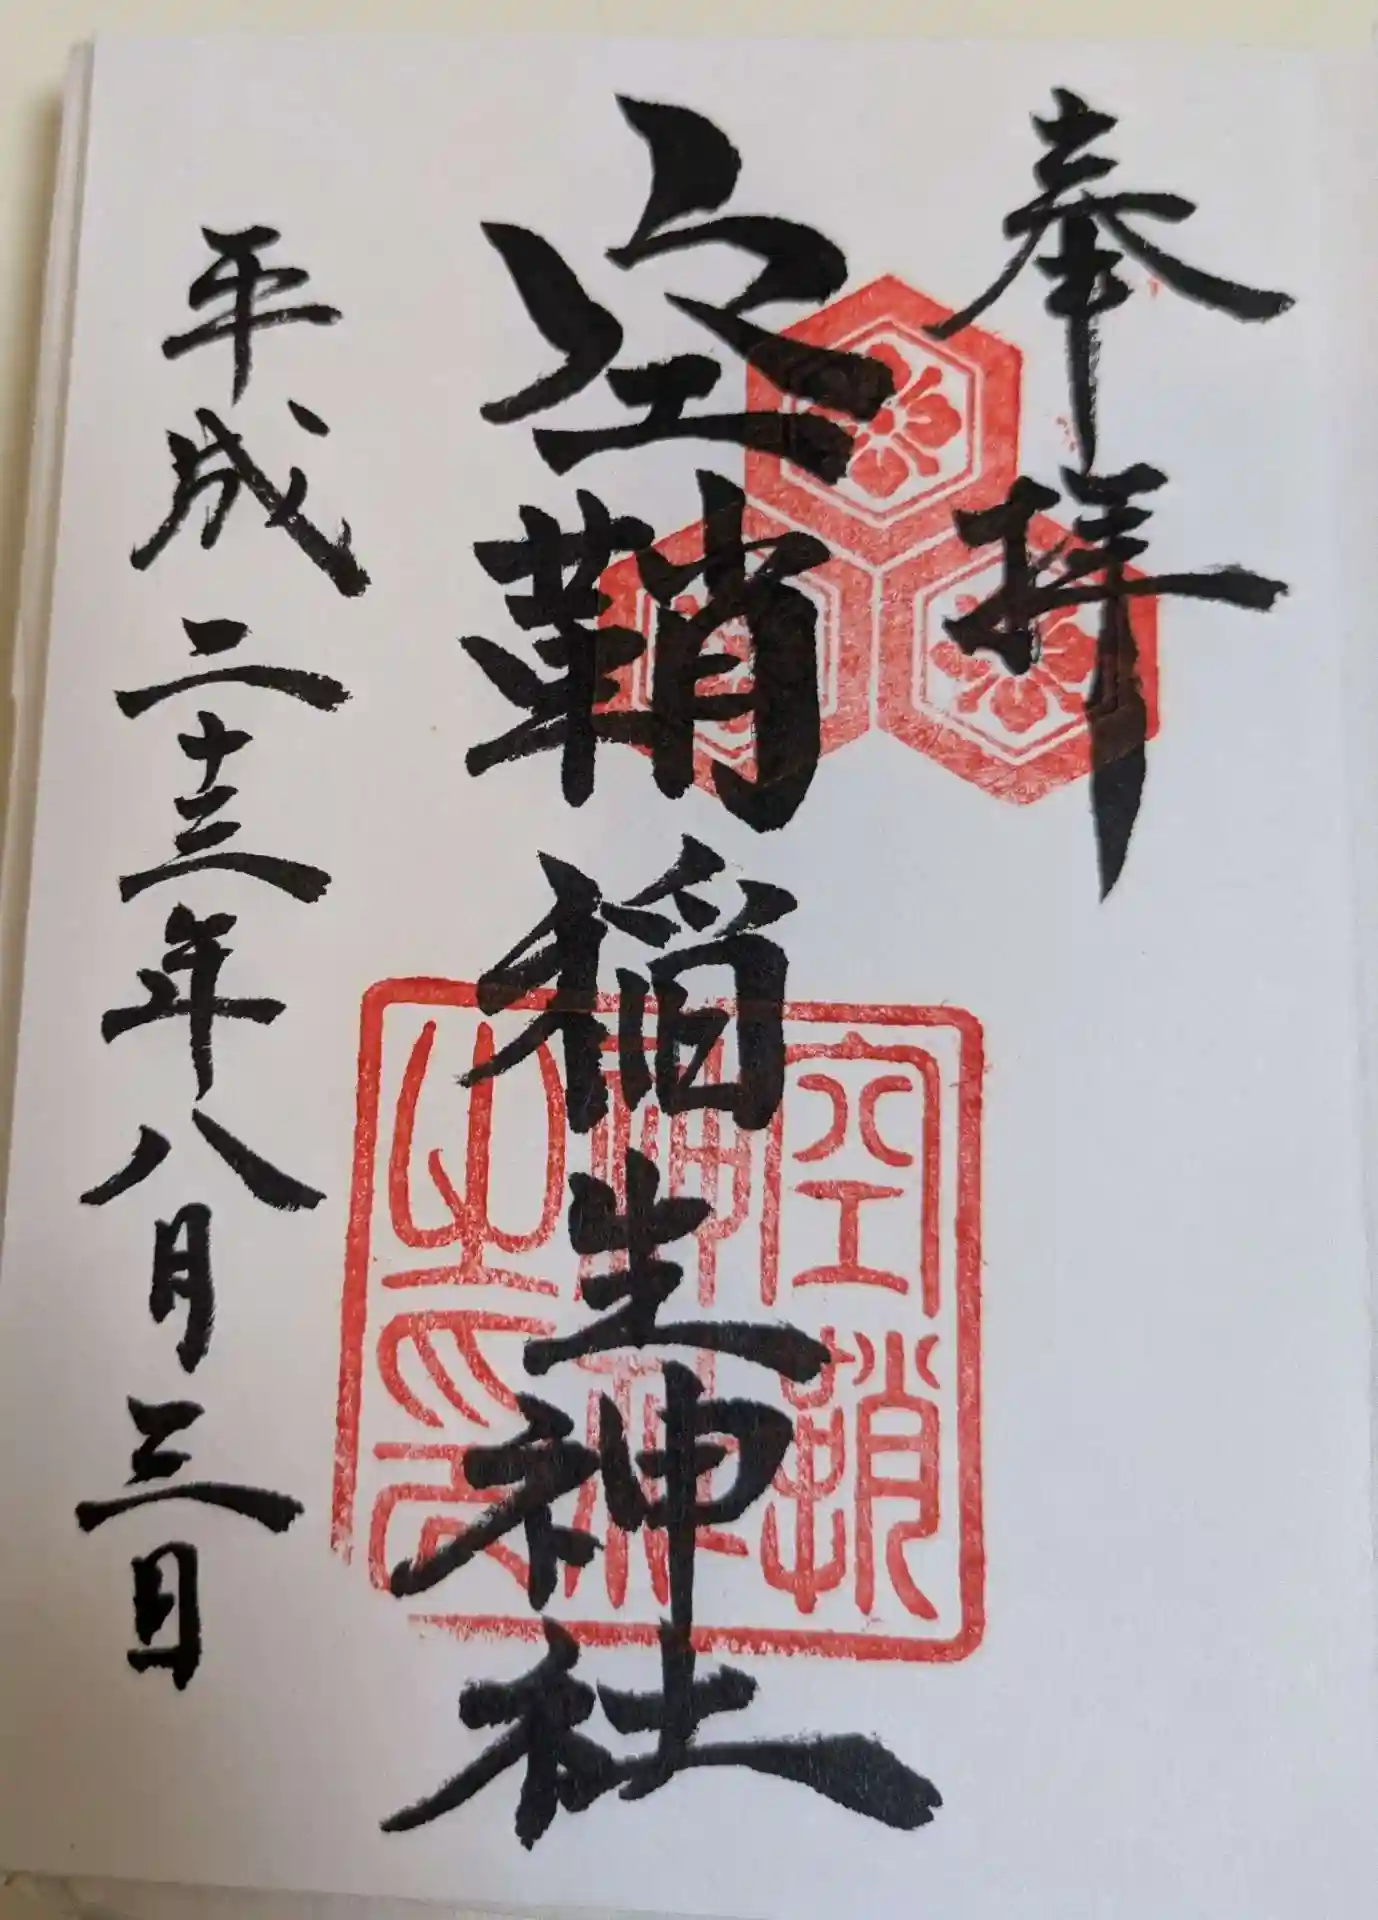 奉拝
空鞘稲生神社
平成二十三年八月三日
空鞘
神社
之印